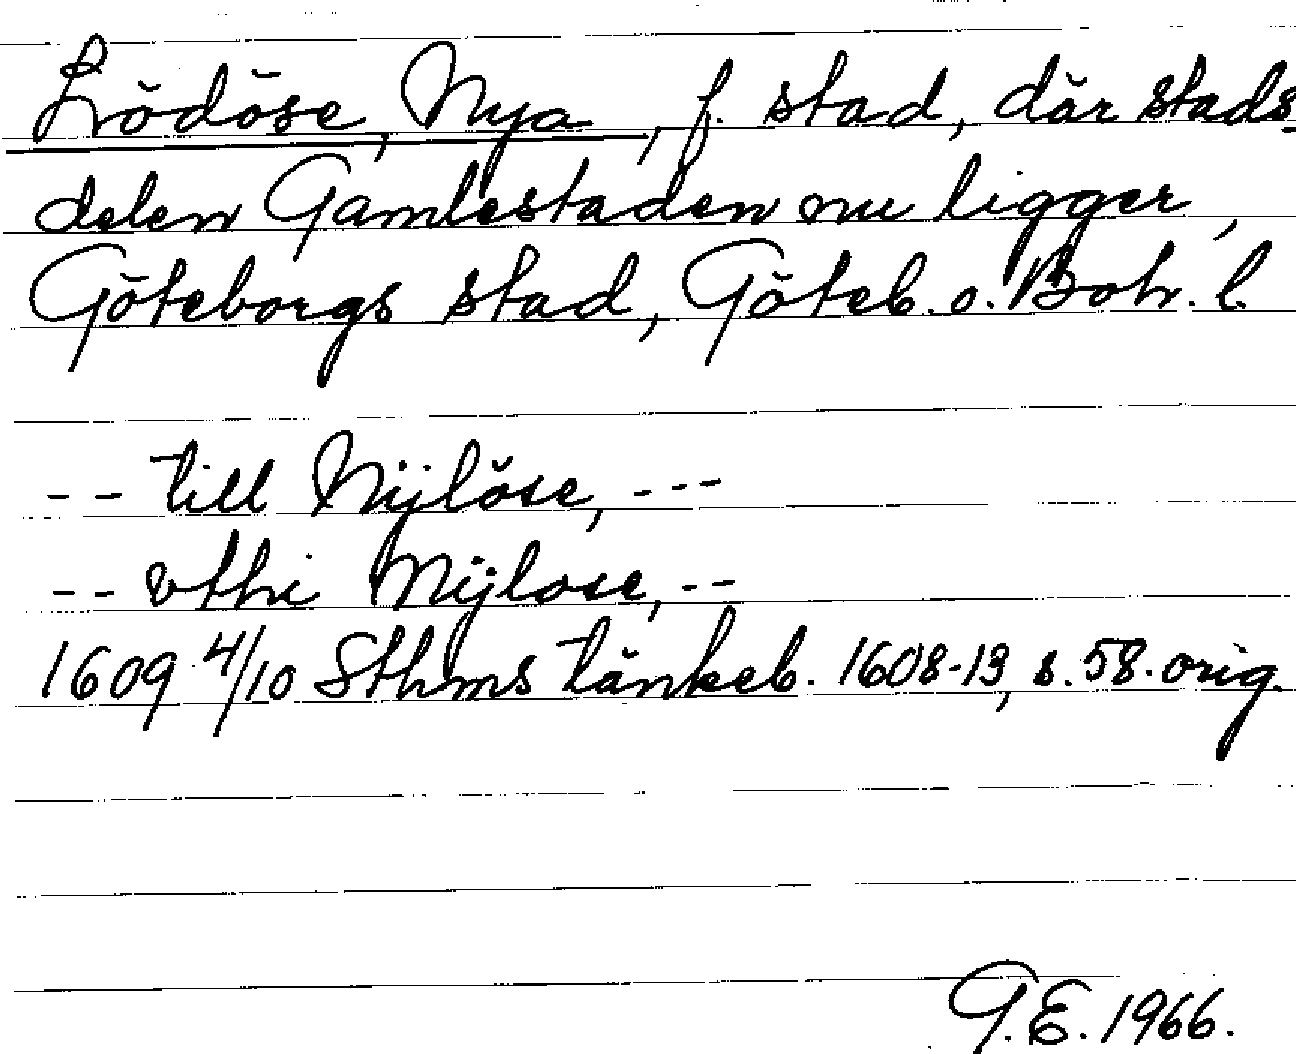 Lödöse, Nya, f. stad, där stads-
delen Gamlestaden nu ligger,
Göteborgs stad, Göteb. o. Boh. l.
-- till Nijlöse, ---
-- vthi Nijlose, --
1609 4/10 Sthms tänkeb. 1608-13, s. 58. orig.
G.E. 1966.